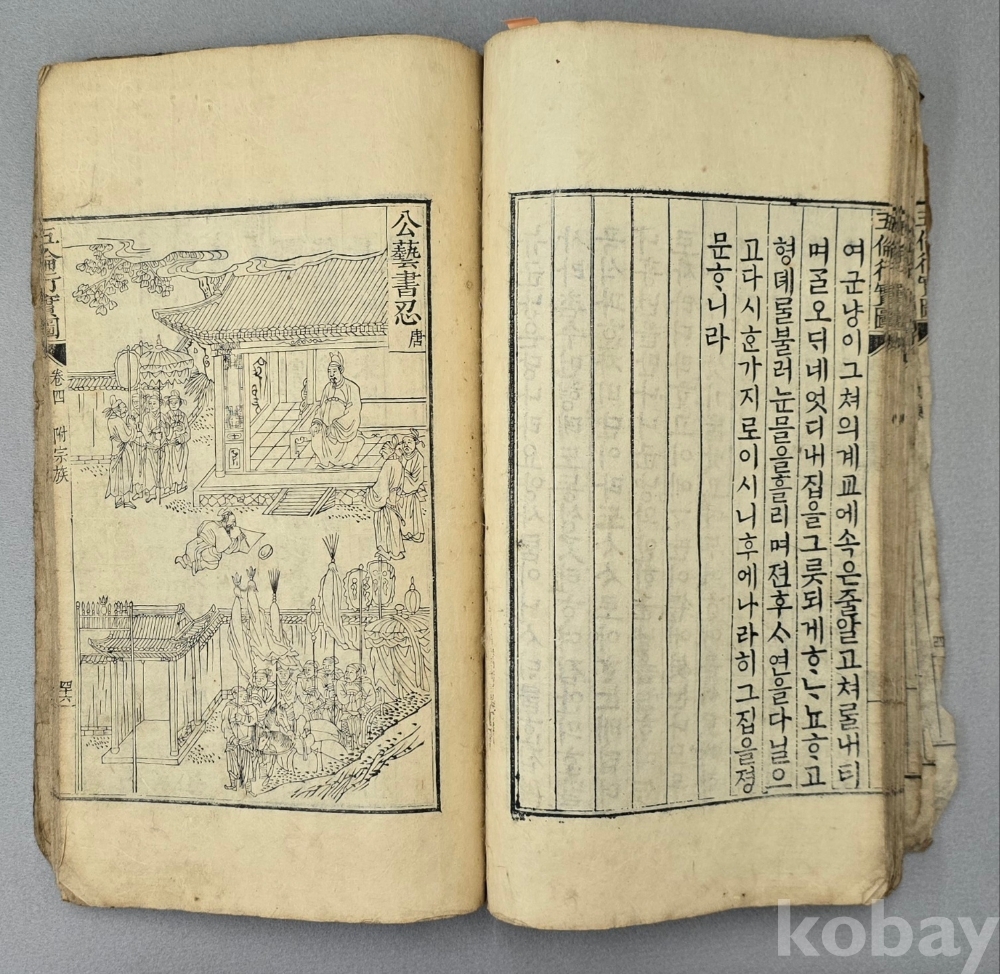 五倫行實圖
여군냥이그쳐의계교에속은줄알고쳐ᄅᆞᆯ내티
며ᄀᆞᆯ오ᄃᆡ네엇디내집을그릇되게ᄒᆞᄂᆞ뇨ᄒᆞ고
형뎨ᄅᆞᆯ불러눈믈을흘리며젼후ᄉᆞ연을다닐으
고다시ᄒᆞᆫ가지로이시니후에나라히그집을졍
문ᄒᆞ니라
公藝書忍 唐
五倫行實圖 卷四 附宗族 四十六
kobay